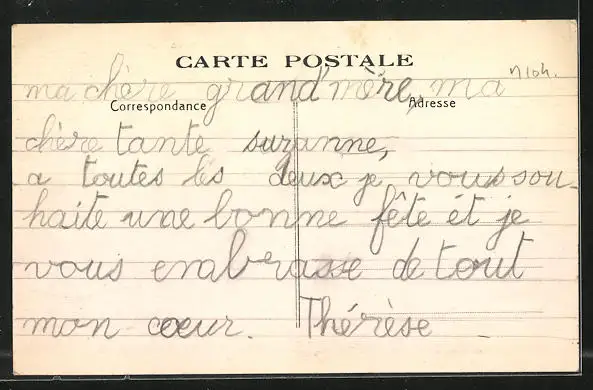 CARTE POSTALE
ma chère grand'mère, ma
Correspondance
Adresse
chère tante suzanne,
a toutes les deux je vous sou-
haite une bonne fête ét je
vous embrasse de tout
mon coeur. Thérèse